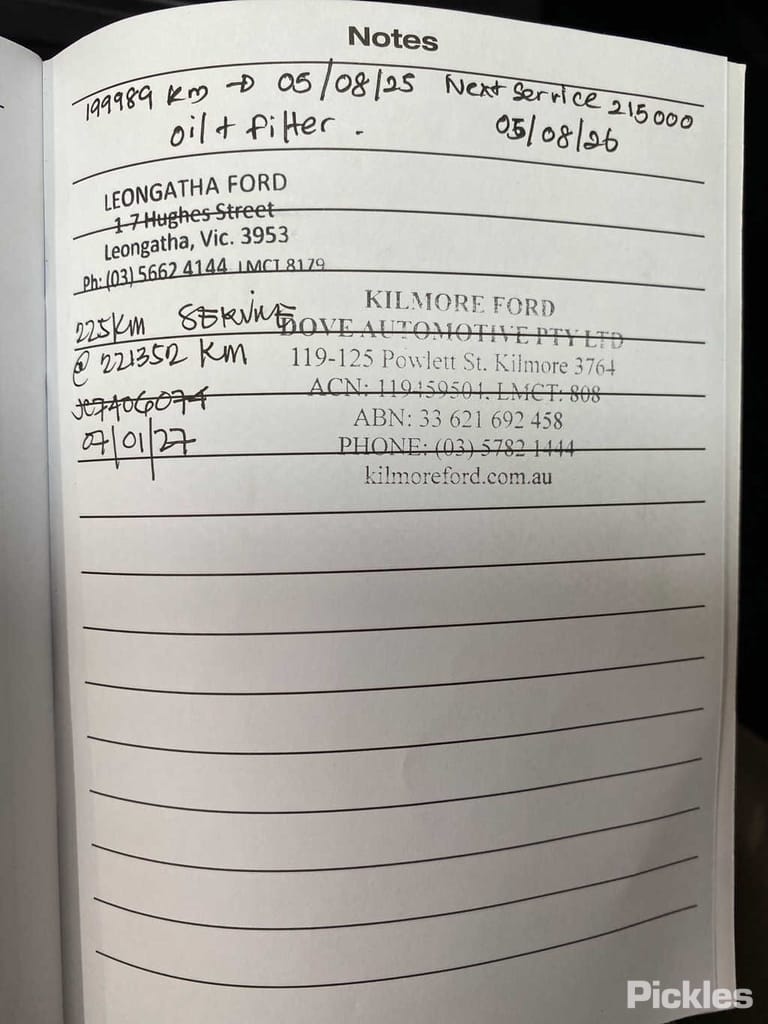 Notes
199989 km → 05/08/25 Next Service 215000
oil + filter . 05/08/26
LEONGATHA FORD
1-7 Hughes Street
Leongatha, Vic. 3953
Ph: (03) 5662 4144 LMCT 8179
225KM SERVICE
@ 221352 KM
07/01/27
KILMORE FORD
DOVE AUTOMOTIVE PTY LTD
119-125 Powlett St. Kilmore 3764
ACN: 119459504. LMCT: 808
ABN: 33 621 692 458
PHONE: (03) 5782 1444
kilmoreford.com.au
Pickles